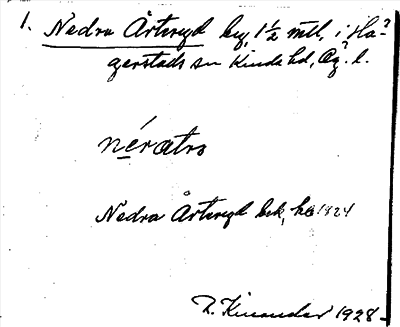 1. Nedra Årteryd by, 1½ mtl. i Ha-
gerstads sn Kinda hd, Ög. l.
Nedra Årteryd bek, hs 1924
R. Kinander 1928